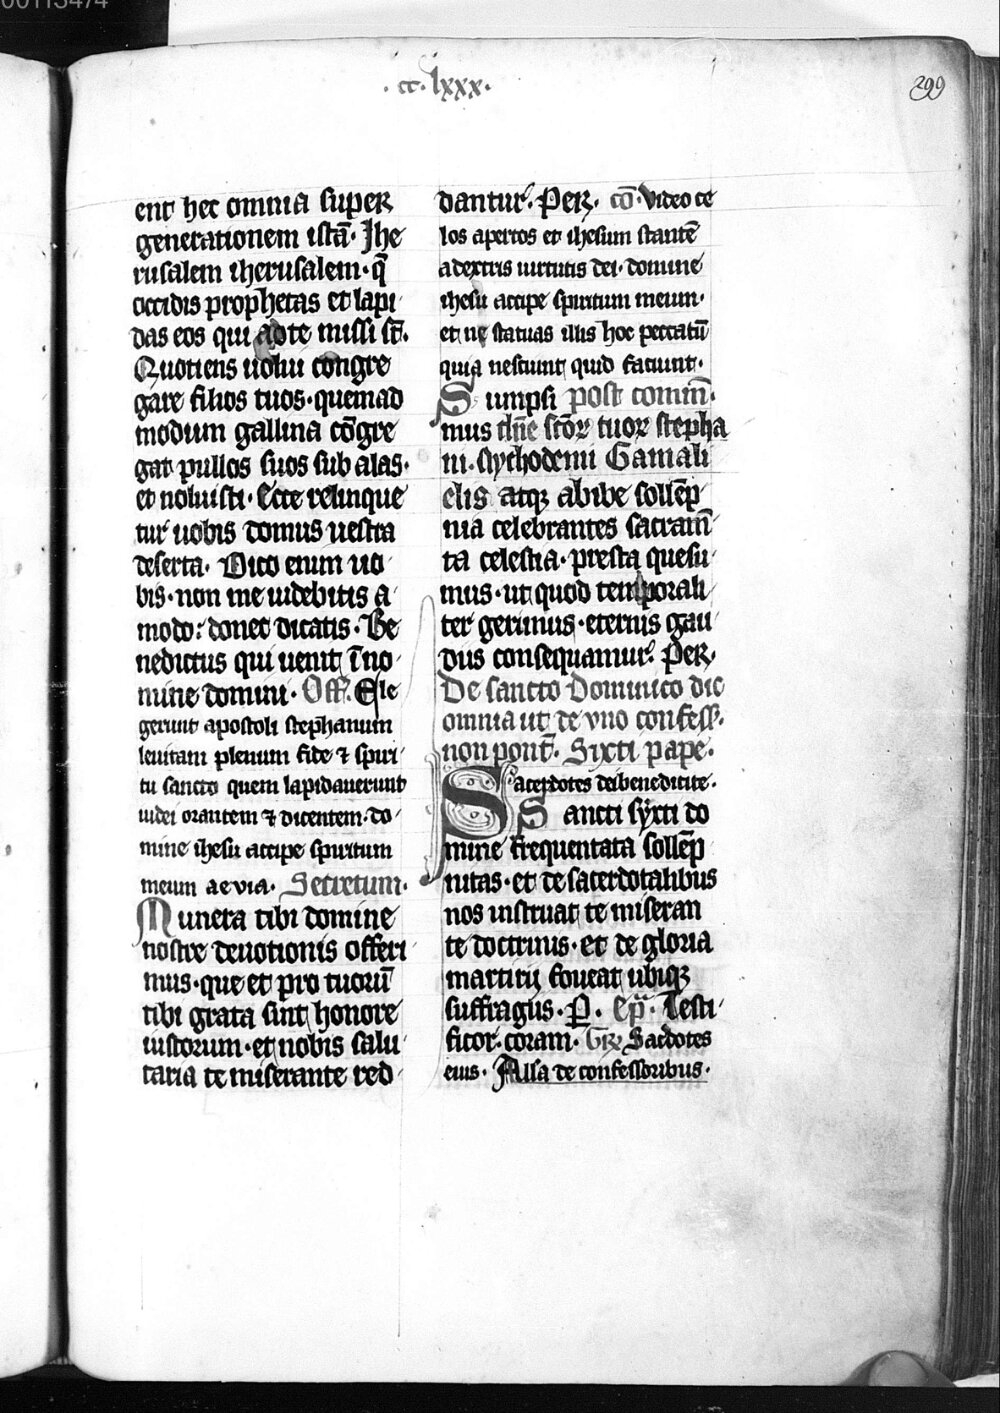 00113474
·cc·lxxx·
299
ent hec omnia super
generationem istā· Jhe
rusalem iherusalem· q̄
occidis prophetas et lapi
das eos qui ad te missi st̄·
Quotiens uolui congre
gare filios tuos· quemad
modum gallina cōgre
gat pullos suos sub alas·
et noluisti· Ecce relinque
tur uobis domus uestra
deserta· Dico enim uo
bis· non me uidebitis a
modo: donec dicatis· Be
nedictus qui uenit ī no
mine domini· Off· Ele
gerunt apostoli stephanum
leuitam plenum fide ⁊ spiri
tu sancto quem lapidauerunt
iudei orantem ⁊ dicentem· do
mine ihesu accipe spiritum
meum aevia· Secretum·
Munera tibi domine
nostre deuotionis offeri
mus· que et pro tuorū
tibi grata sint honore
iustorum· et nobis salu
taria te miserante red
dantur· Per· cō· Video ce
los apertos et ihesum stantē
a dextris uirtutis dei· domine
ihesu accipe spiritum meum·
et ne statuas illis hoc peccatū
quia nesciunt quid faciunt·
Sumpsi post comm̄·
mus dn̄e sc̄oꝝ tuoꝝ stepha
ni· Nychodemi Gamali
elis atqꝫ abibe sollēp
nia celebrantes sacram̄
ta celestia· presta quesu
mus· ut quod temporali
ter gerimus· eternis gau
diis consequamur· Per·
De sancto Dominico dic
omnia ut de vno confess·
non pont̄· Sixti pape·
Sacerdotes dei benedicite·
Sancti syxti do
mine frequentata sollēp
nitas· et de sacerdotalibus
nos instruat te miseran
te doctrinis· et de gloria
martirij foueat ubiqꝫ
suffragiis· P· Ep̄· Testi
ficor· coram· Gr̄ Sacdotes
eius· Alia de confessoribus·